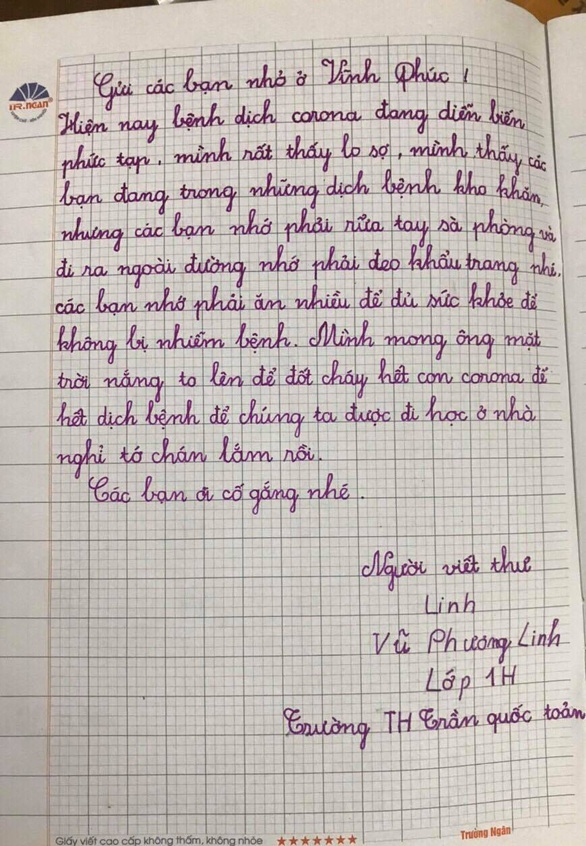 TR.NGAN
Gửi các bạn nhỏ ở Vĩnh Phúc!
Hiện nay bệnh dịch corona đang diễn biến
phức tạp, mình rất thấy lo sợ, mình thấy các
bạn đang trong những dịch bệnh kho khăn,
nhưng các bạn nhớ phải rữa tay sà phòng và
đi ra ngoài đường nhớ phải đeo khẩu trang nhé,
các bạn nhớ phải ăn nhiều để đủ sức khỏe để
không bị nhiễm bệnh. Mình mong ông mặt
trời nắng to lên để đốt cháy hết con corona để
hết dịch bệnh để chúng ta được đi học ở nhà
nghỉ tớ chán lắm rồi.
Các bạn ơi cố gắng nhé.
Người viết thư
Linh
Vũ Phương Linh
Lớp 1H
Trường TH Trần quốc toản
Giấy viết cao cấp không thấm, không nhòe
Trường Ngân